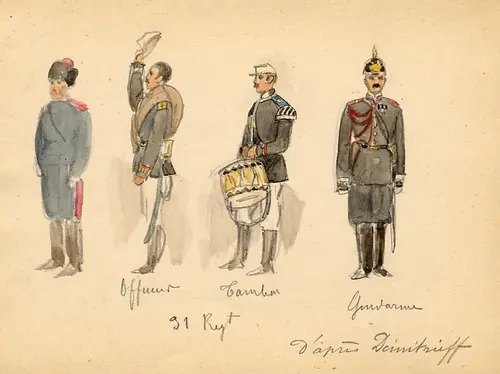 Officier
Tambor
Gendarme
31 Regt
D'après Dimitrieff